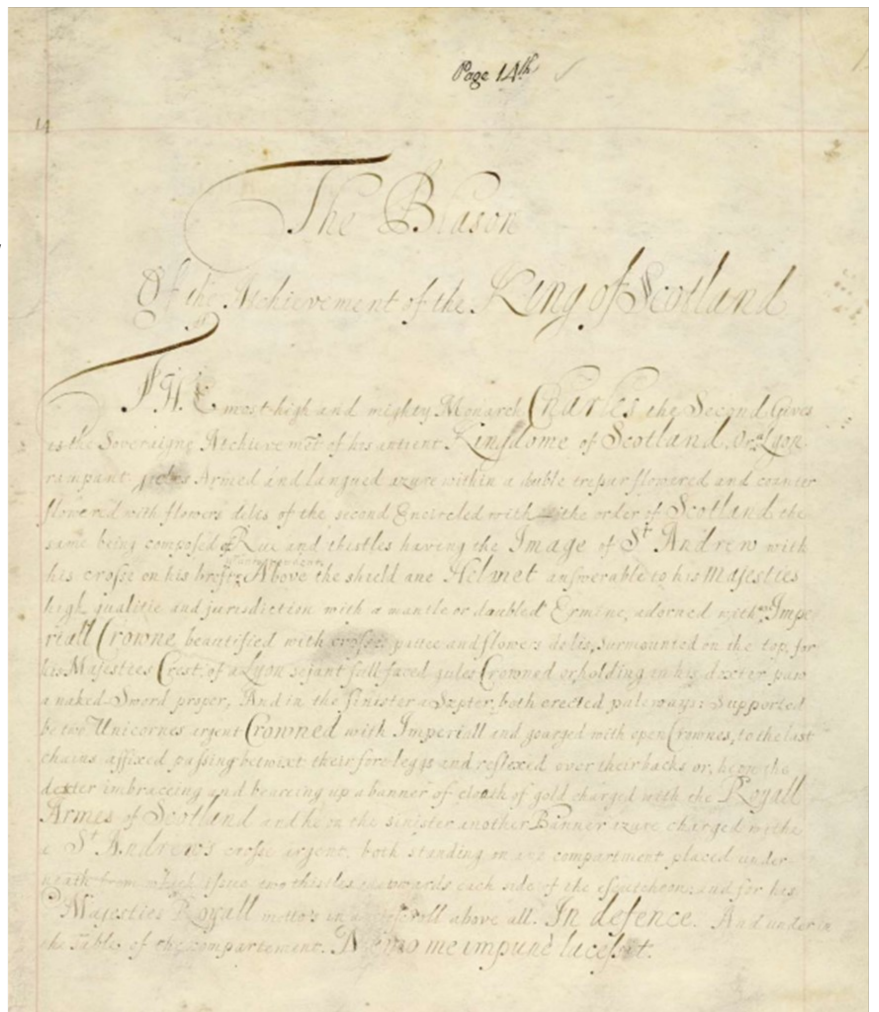 Page 14th
14
The Blason
Of the Atchievement of the King of Scotland
THE most high and mighty Monarch Charles the Second Gives
as the Soveraigne Atchievmet of his antient Kingdome of Scotland. Or a Lyon
rampant gules Armed and langued azure within a double tressur flowered and counter
flowered with flowers delis of the second Encircled with the order of Scotland the
same being composed of Rue and thistles having the Image of St Andrew with
his crosse on his brest Above the shield ane Helmet answerable to his Majesties
high qualitie and jurisdiction with a mantle or doubled Ermine, adorned with ane Impe
riall Crowne beautified with crosses pattee and flowers delis, surmounted on the top, for
his Majesties Crest, of a Lyon sejant full faced gules Crowned or, holding in his dexter paw
a naked Sword proper, And in the sinister a Szpter, both erected paleways: Supported
be two Unicornes argent Crowned with Imperiall and gourged with open Crownes, to the last
chains affixed passing betwixt their fore leggs and reflexed over their backs or, he on the
dexter imbraceing and beareing up a banner of cloath of gold charged with the Royall
Armes of Scotland and he on the sinister another Banner azure charged withe
St Andrew's crosse argent, both standing on ane compartment placed under
neath from which issue two thistles towards each side of the escutcheon: and for his
Majesties Royall motto's in a scroll above all. In defence. And under in
the Table of the compartement. Nemo me impunè lacessit.